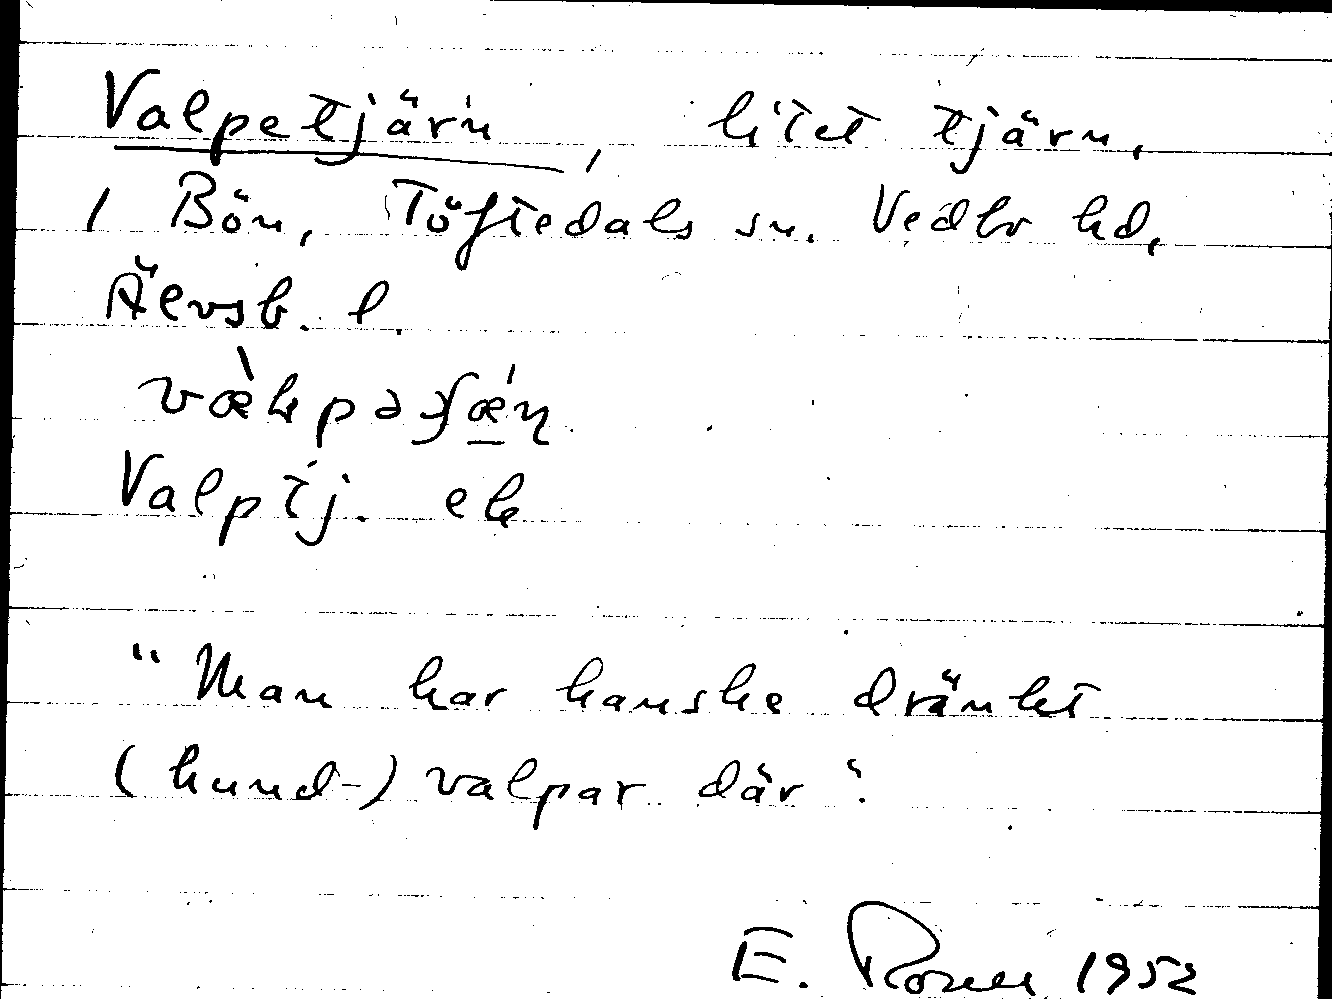 Valpetjärn, litet tjärn,
i Bön, Töftedals sn. Vedbo hd,
Älvsb. l.
Valptj. ek
"Man har kanske dränkt
(hund-) valpar där".
E. Rosell 1952